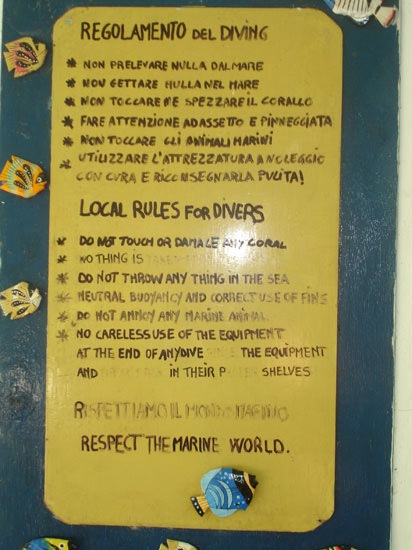 REGOLAMENTO DEL DIVING
* NON PRELEVARE NULLA DAL MARE
* NON GETTARE NULLA NEL MARE
* NON TOCCARE NE SPEZZARE IL CORALLO
* FARE ATTENZIONE AD ASSETTO E PINNEGGIATA
* NON TOCCARE GLI ANIMALI MARINI
* UTILIZZARE L'ATTREZZATURA A NOLEGGIO
CON CURA E RICONSEGNARLA PULITA!
LOCAL RULES FOR DIVERS
* DO NOT TOUCH OR DAMAGE ANY CORAL
* NO THING IS TAKEN
* DO NOT THROW ANY THING IN THE SEA
* NEUTRAL BUOYANCY AND CORRECT USE OF FINS
* DO NOT ANNOY ANY MARINE ANIMAL
* NO CARELESS USE OF THE EQUIPMENT
AT THE END OF ANY DIVE THE EQUIPMENT
AND IN THEIR SHELVES
RISPETTIAMO IL MONDO MARINO
RESPECT THE MARINE WORLD.